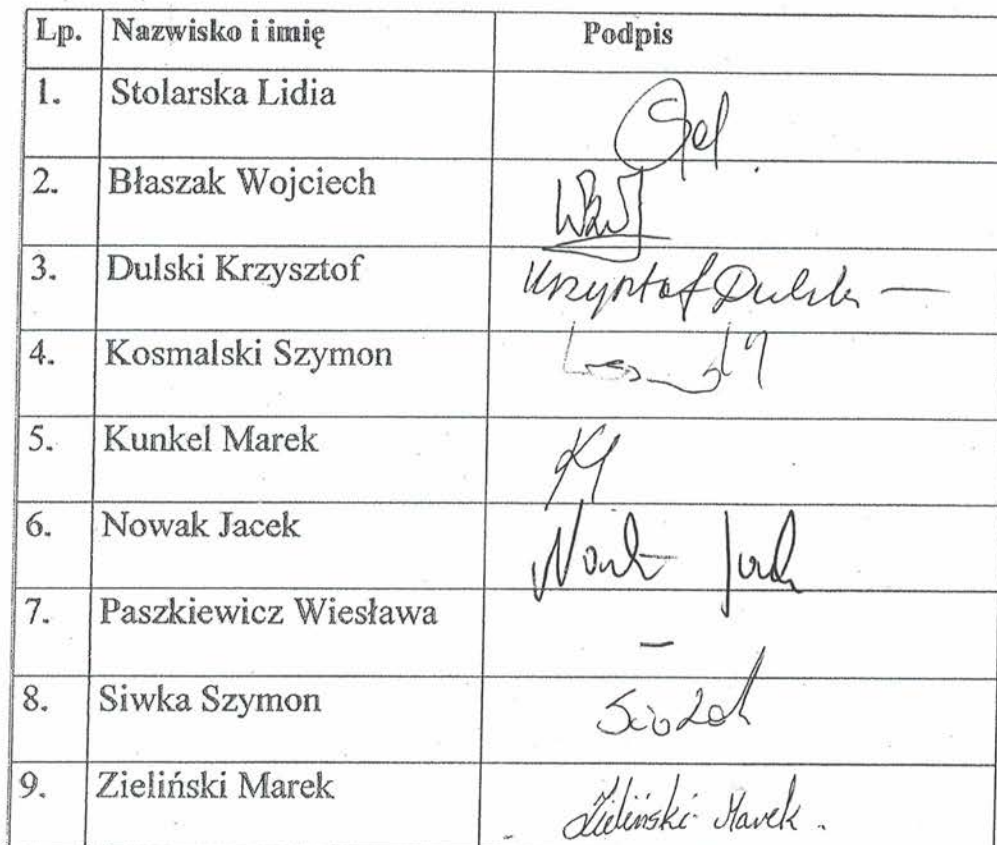 Lp. Nazwisko i imię Podpis
1. Stolarska Lidia
2. Błaszak Wojciech
3. Dulski Krzysztof Krzysztof Dulski —
4. Kosmalski Szymon
5. Kunkel Marek
6. Nowak Jacek Nowak Jacek
7. Paszkiewicz Wiesława —
8. Siwka Szymon
9. Zieliński Marek Zieliński Marek.